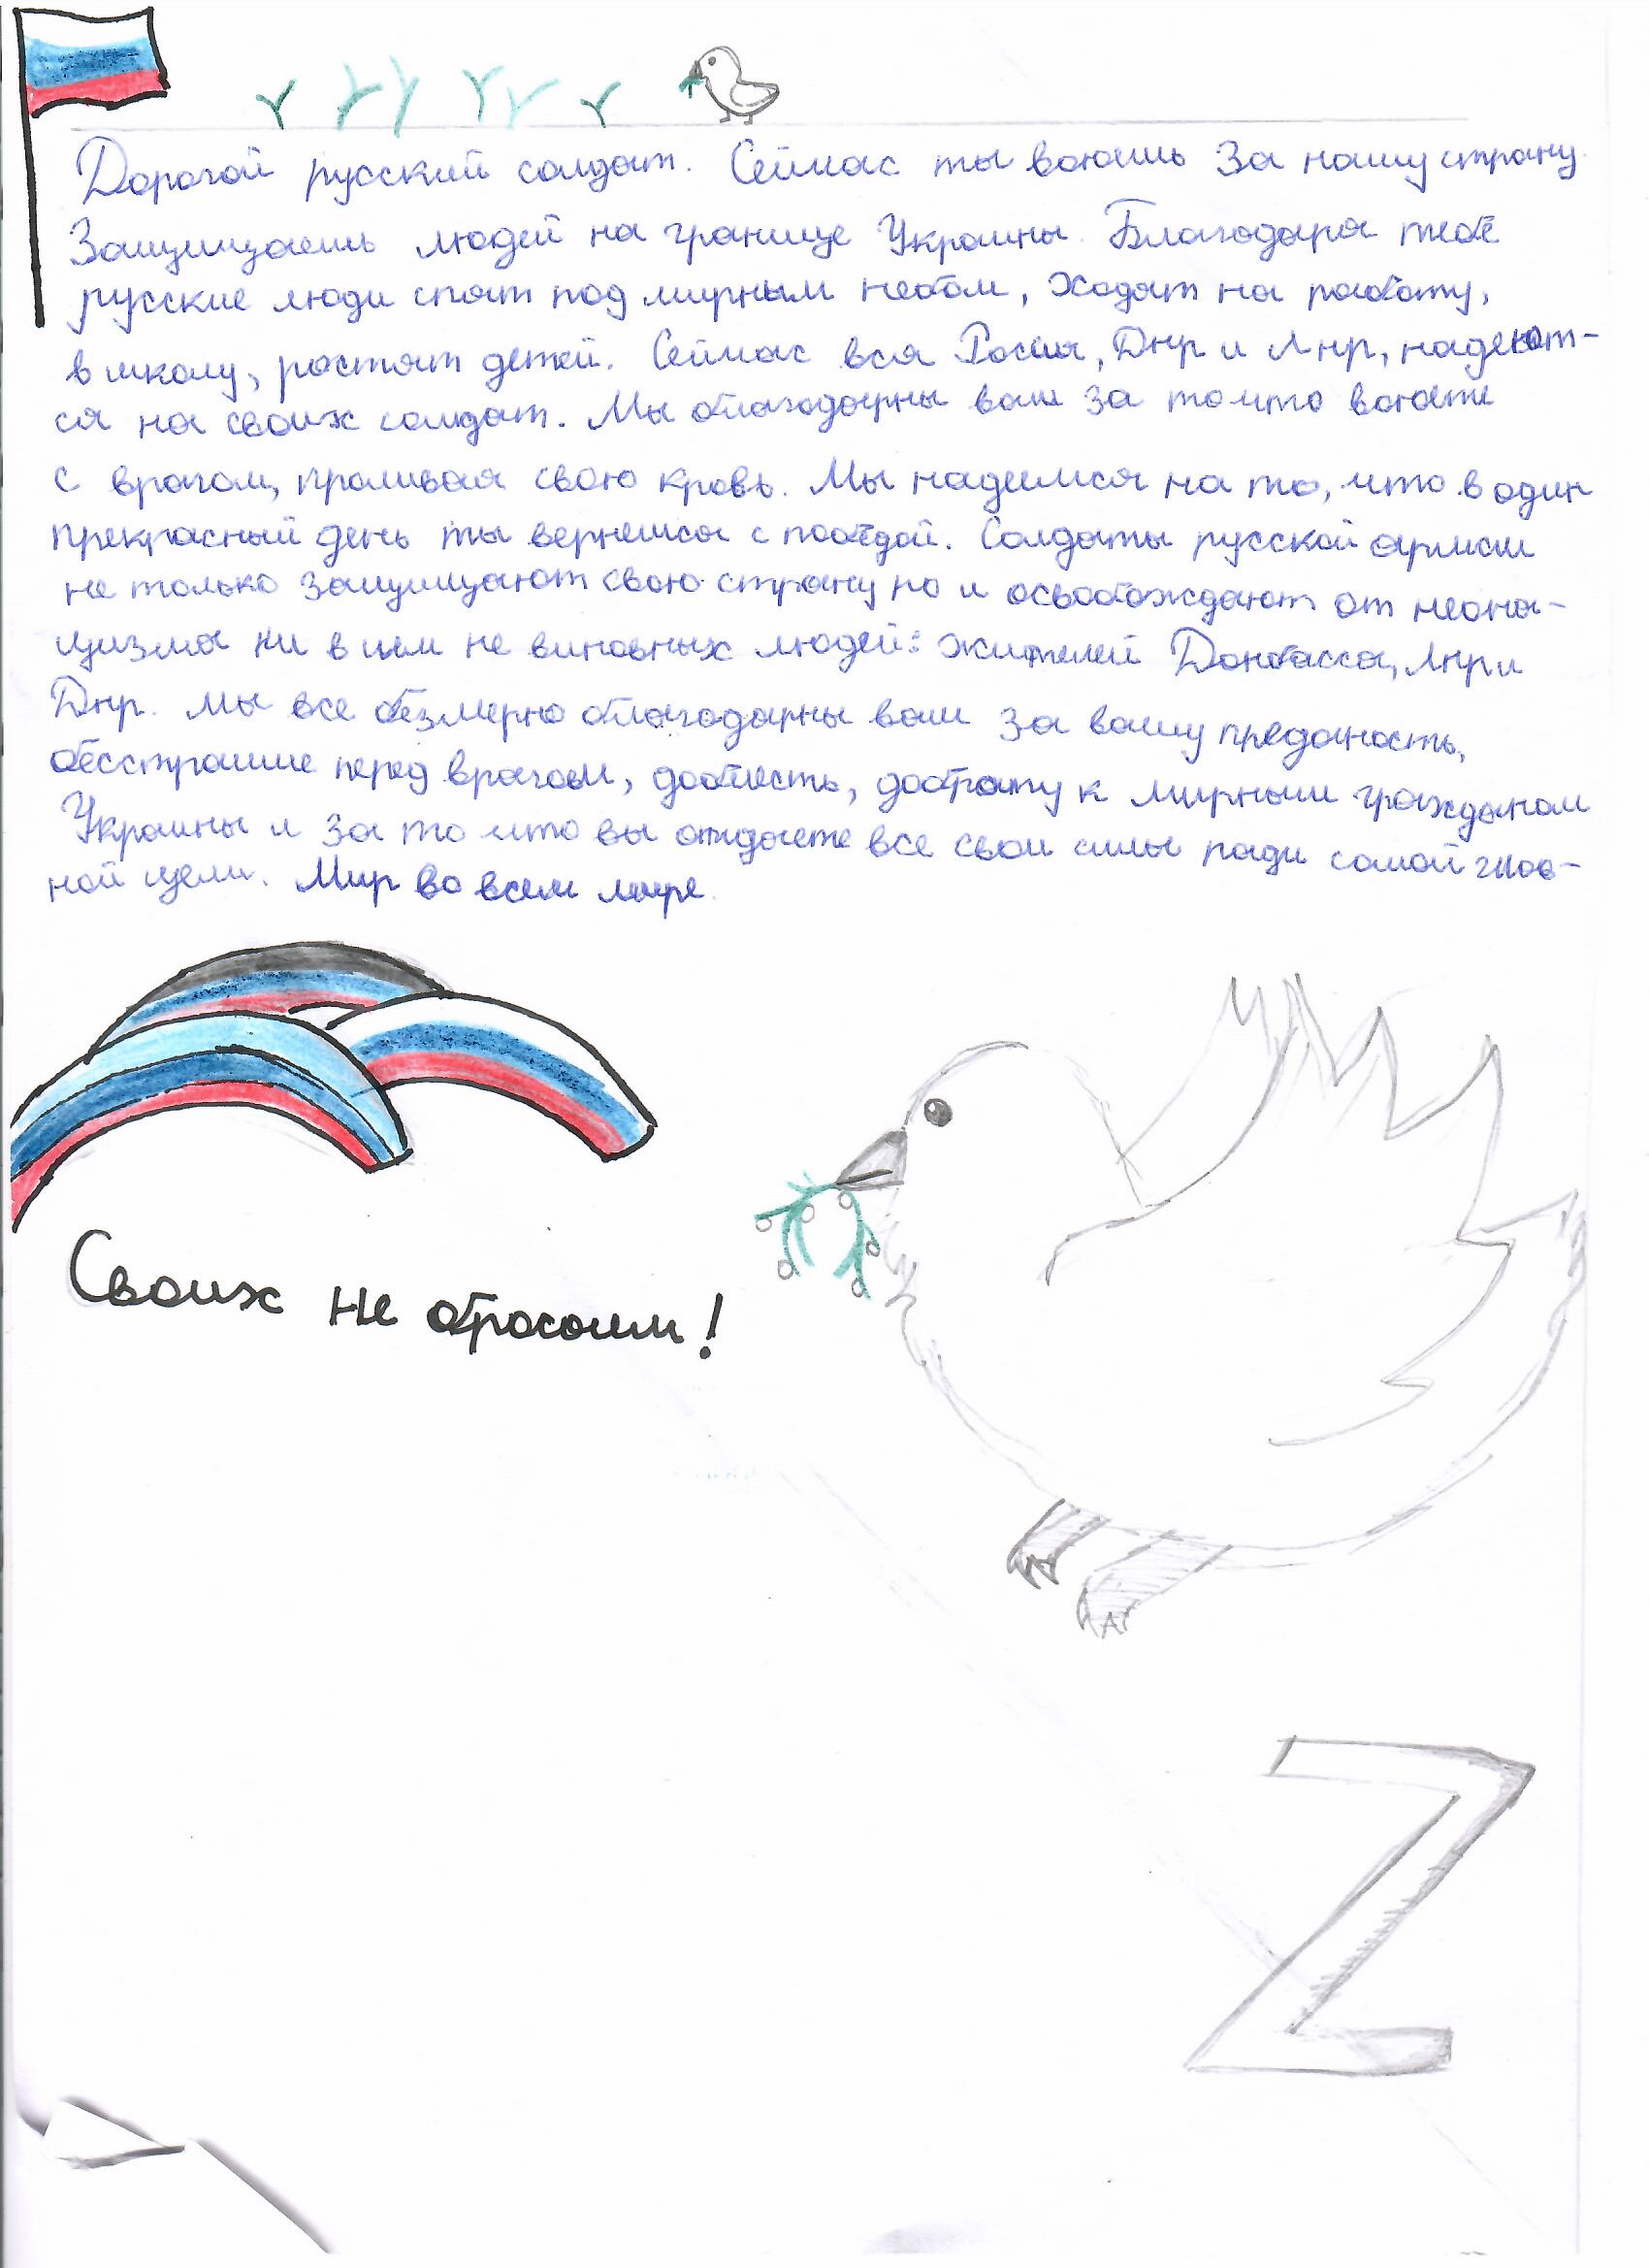 Дорогой русский солдат. Сейчас ты воюешь за нашу страну.
Защищаешь людей на границе Украины. Благодаря тебе
русские люди спят под мирным небом, ходят на работу,
в школу, растят детей. Сейчас вся Россия, Днр и Лнр, надеют-
ся на своих солдат. Мы благодарны вам за то что воюете
с врагом, проливая свою кровь. Мы надеимся на то, что в один
прекрасный день ты вернешся с победой. Солдаты русской армии
не только защищают свою страну но и освобождают от неона-
цизма ни в чем не виновных людей: жителей Донбасса, Лнр и
Днр. Мы все безмерно благодарны вам за вашу преданость,
бесстрашие перед врагом, доблесть, доброту к мирным гражданам
Украины и за то что вы отдаете все свои силы ради самой глав-
ной цели. Мир во всем мире.
Своих не бросаем!
Z